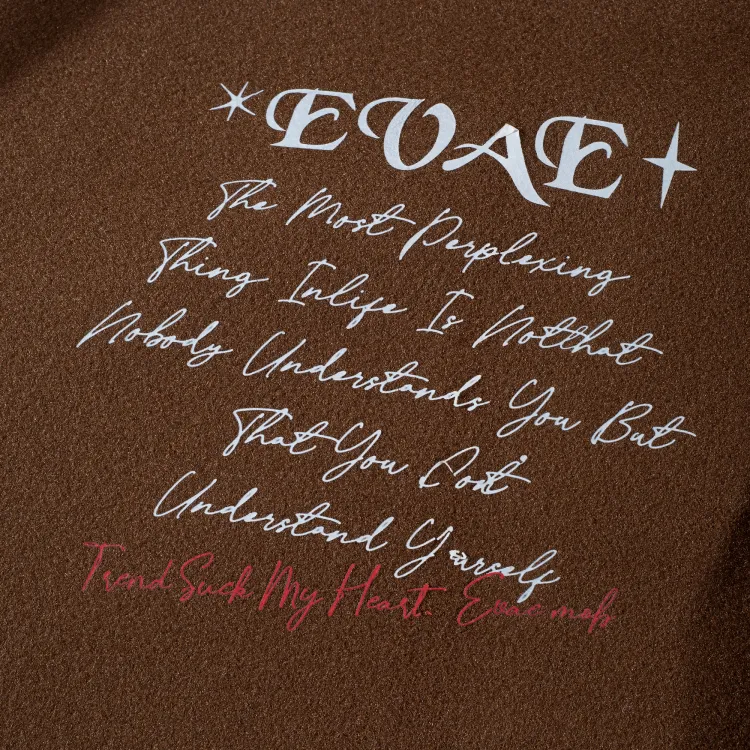 EVAE
The Most Perplexing
Thing Inlife Is Notthat
Nobody Understands You But
That You Cont'
Understand Yourself
Trend Suck My Heart. Evae mob